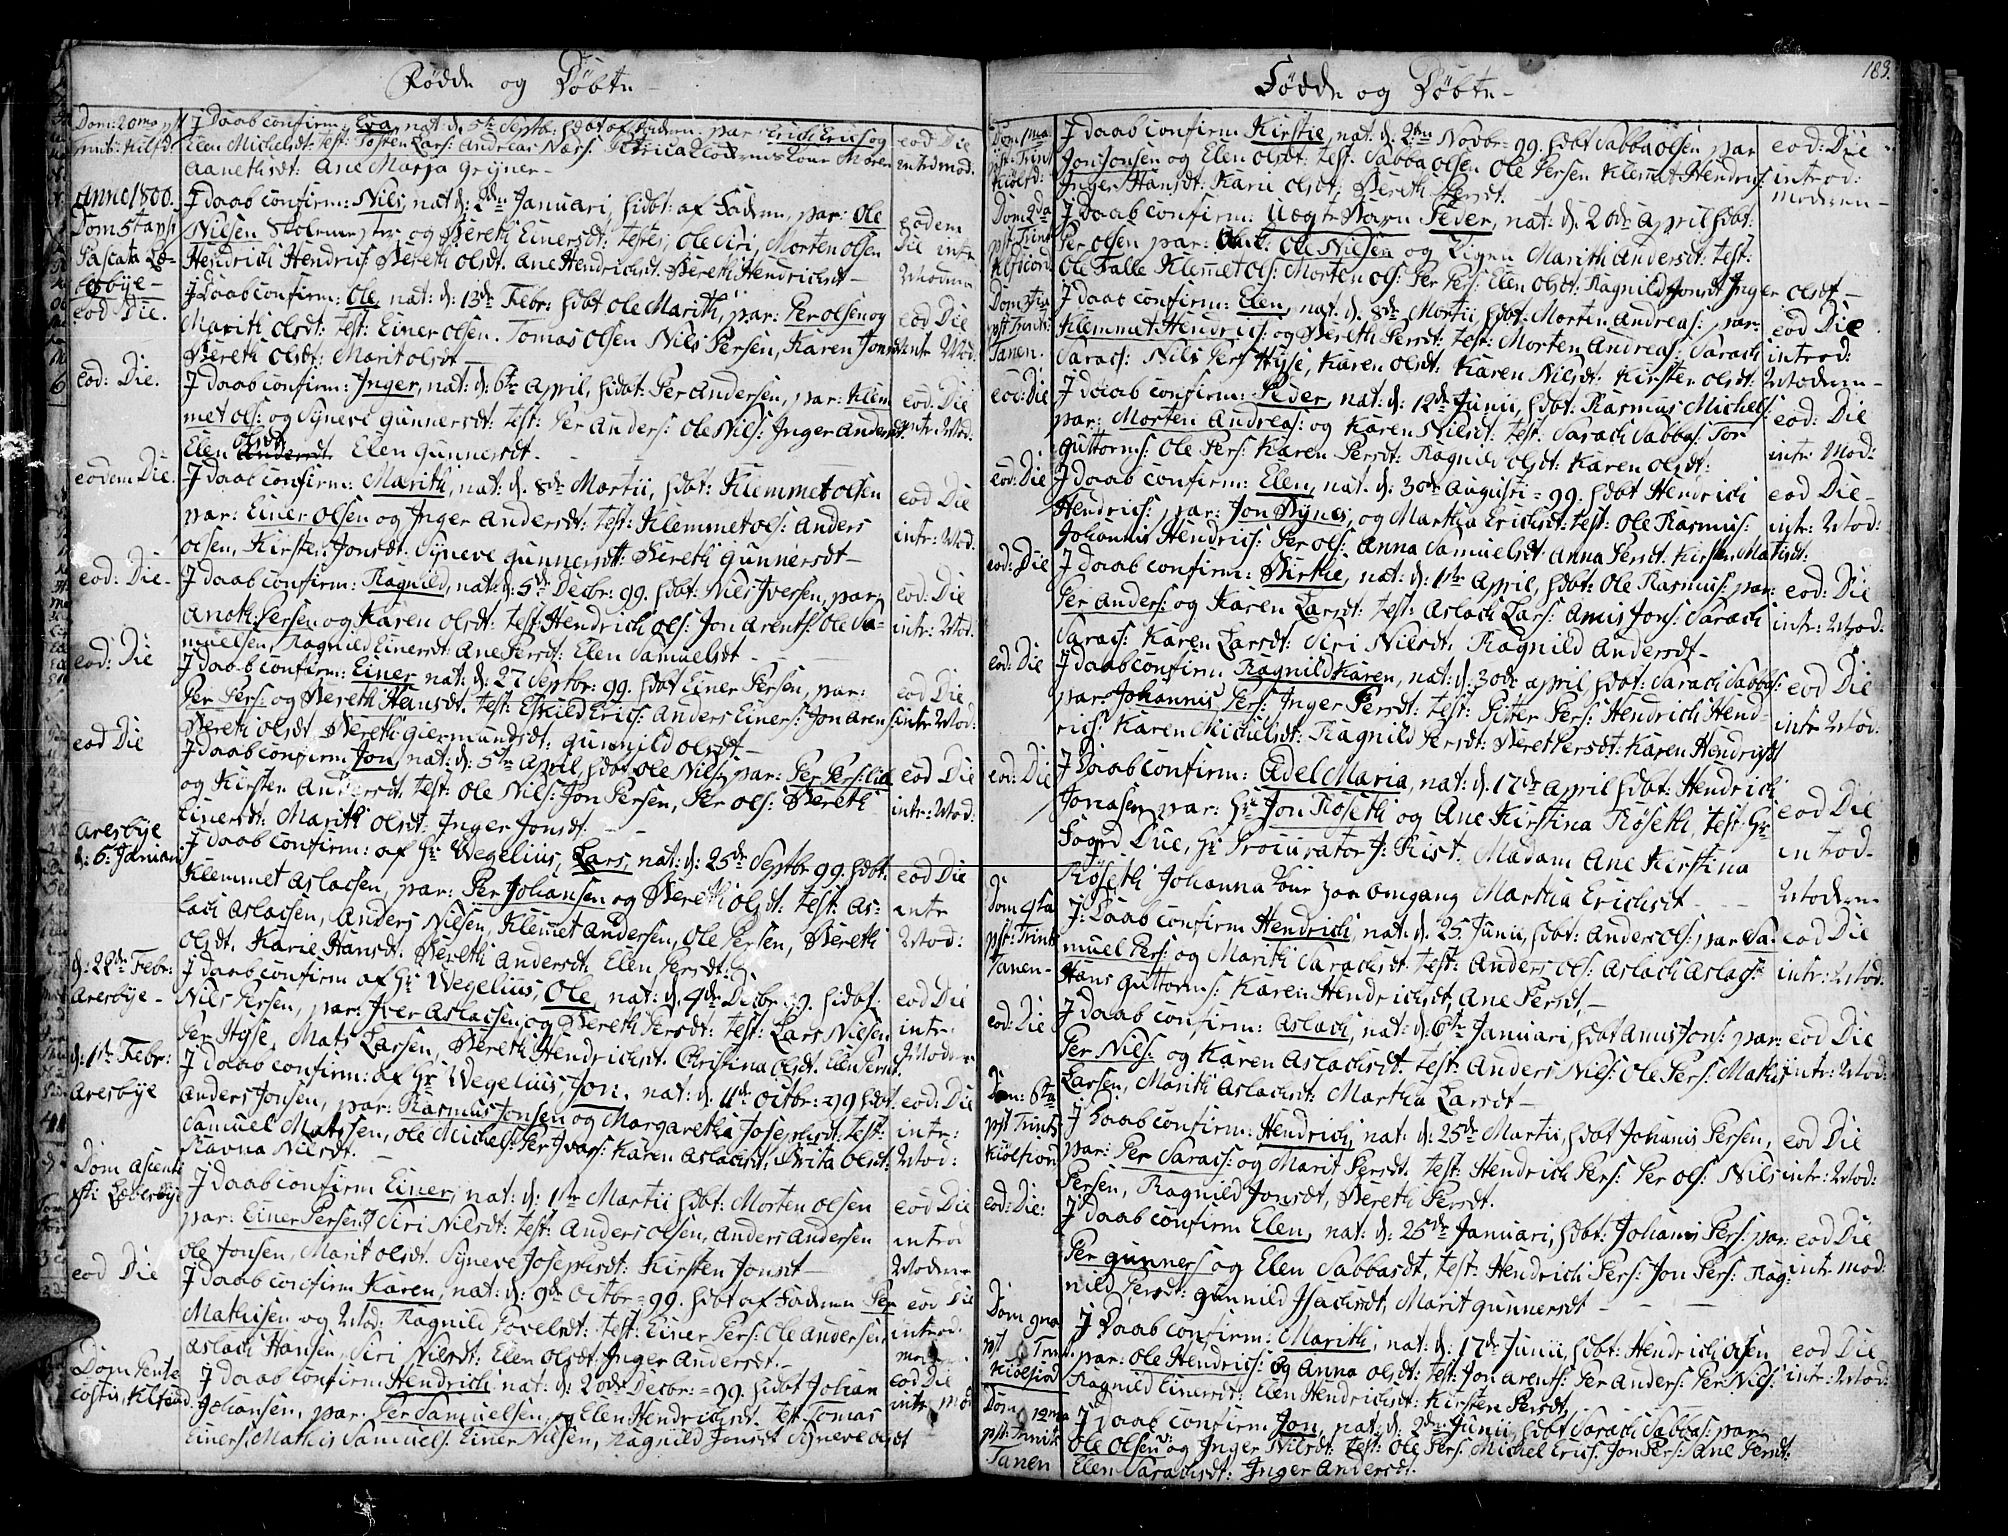 Fødde og Døbte
Dom: 20mo pst
Trinit: Kilf:
J Daab confirm: Eva, nat: d. 5te Septbr: hdbt af Faderen, par: Erich Erics: og
Elen Michelsdt: test: Tosten Lars: Andreas Næss:
Aanethsdt: Ane Marja Grejner
eod Die
introd mod:
Anno 1800.
Dom 5ta pst
Pascata Lebesbye
J Daab confirm: Nils, nat: d: 2den Januari, hdbt: af Faderen, par: Ole
Nilsen Skolemester og Bereth Einersdt: testes, Ole Siri, Morten Olsen
Hendrich Hendrics: Bereth Olsdt. Ane Hendrichsdt. Bereth Hendrichsdt
eodem
Die intr
Moderen
eod Die.
J Daab confirm: Ole, nat: d: 13de Febr: hdbt Ole Marith, par: Per Olsen og
Marith Olsdt: test: Einer Olsen. Tomas Olsen Nils Persen, Karen Jonsdt
Bereth Olsdt: Marit Olsdt
eod Die
intr Mod:
eod: Die.
J daab confirm: Inger, nat: d: 6te April, hdbt: Per Andersen, par: Klem
met Ols: og Syneve Gunnersdt: test: Per Anders: Ole Nils: Inger Andersdt
Elen Olsdt Elen Gunnersdt
eod Die
intr: Mod:
eodem Die.
J daab confirm: Marith, nat: d. 8de Martii, hdbt: Klemmet Olsen
par: Einer Olsen og Inger Andersdt: test: Klemmet Ols: Anders
Olsen, Kirsten Jonsdt: Syneve Gunnersdt: Bereth Gunnersdt
eod Die
intr: Mod:
eod: Die
J daab confirm: Ragnild, nat: d: 5de Decbr: 99. hdbt: Nils Iversen, par:
Anoth Persen og Karen Olsdt: test: Hendrich Ols: Jon Arents: Ole Sa-
muelsen, Ragnild Einersdt: Ane Persdt: Elen Samuelsdt
eod: Die
intr: Mod:
eod: Die
J daab confirm: Einer nat: d: 27 Septbr: 99. hdbt Einer Persen, par:
Per Pers: og Bereth Hansdt. test: Eskild Erics: Anders Einers: Jon Arens:
Bereth Olsdt Bereth Giermundsdt: Gunnild Olsdt
eod Die
intr Mod:
eod Die
J daab confirm: Jon, nat: d: 5te April, hdbt Ole Nils, par: Per Pers: Lid
og Kirsten Andersdt: test: Ole Nils: Jon Persen, Per Ols: Bereth
Einersdt: Marith Olsdt: Inger Jonsdt
eod Die
intr: Mod:
Aresbye
d: 6: Januari
J daab confirm: af Hr Wegelius, Lars, nat: d: 25de Septbr 99. hdbt:
Klemmet Aslacsen, par: Per Johansen og Bereth Olsdt: test: As-
lach Aslacsen, Anders Nilsen, Klemmet Andersen, Ole Persen, Bereth
Olsdt. Karie Hansdt. Bereth Andersdt: Elen Persdt:
eod Die
intr
Mod:
d: 22de Febr:
Aresbye
J daab confirm af Hr Wegelius, Ole, nat: d. 4de Decbr 99. hdbt:
Nils Persen, par: Iver Aslacsen og Bereth Persdt: test: Lars Nilsen
Per Hyse, Mats Larsen, Bereth Hendrichsdt. Christina Olsdt. Elen Persdt
eod Die
intr:
Moderen
d: 1ste Febr:
Aresbye
J daab confirm: af Hr Wegelius, Jon, nat: d: 11de Octbr: 99 hdbt:
Anders Jonsen, par: Rasmus Jonsen og Margaretha Josephsdt: test:
Samuel Matisen, Ole Michels: Per Ivars: Karen Aslachsdt: Brita Olsdt
Ravna Nilsdt.
eod: Die
intr:
Mod:
Dom Ascenti
xsti Lebesbye
J daab confirm Einer, nat: d: 1ste Martii hdbt: Morten Olsen
par: Einer Persen og Siri Nilsdt: test: Anders Olsen, Anders Andersen
Ole Jonsen, Marit Olsdt. Syneve Josephsdt: Kirsten Jonsdt
eod Die
introd
Moderen
eod Die
J daab confirm Karen, nat: d: 9de Octbr = 99. hdbt af Faderen Per
Mathisen og Mod: Ragnild Povelsdt: test: Einer Pers: Ole Andersen
Aslach Hansen, Siri Nilsdt: Elen Olsdt: Inger Andersdt.
eod Die
introd.
moderen
Dom Pente
costis, Kilfiord
J daab confirm Hendrich nat: d: 20de Decbr: = 99. hdbt Johan
Johansen, par: Per Samuelsen og Elen Hendrichsdt. test Tomas
Einers: Mathis Samuels: Einer Nilsen, Ragnild Jonsdt Syneve Olsdt
eod Die
intr Mod
183.
Fødde og Døbte
Dom 1ma
pst Trinit
Kiölfd:
J daab confirm Kirstie, nat: d: 2den Novbr = 99. hdbt Sabba Olsen par
Jon Jonsen og Elen Olsdt: test: Sabba Olsen Ole Persen Klemet Hendrics
Inger Hansdt: Karie Olsdt: Bereth Persdt.
eod: Die
introd:
moderen
Dom 2da
pst Trinit
Kifiord
J daab confirm: Uægte Barn Peder, nat: d. 20de April hdbt:
Per Olsen par: Ole Nilsen og Pigen Marith Andersdt: test:
Ole Falle Klemmet Ols: Morten Ols: Per Pers: Elen Olsdt: Ragnild Jonsdt Inger Olsdt
Dom 3tia
pst Trinit:
Tanen.
J daab confirm: Elen, nat: d. 8de Martii, hdbt: Morten Andreas: par:
Klemmet Hendrics: og Bereth Persdt: test: Morten Andreas: Sarach
Saracs: Nils Pers Hyse, Karen Olsdt: Karen Nilsdt: Kirsten Olsdt:
eod Die
introd:
Moderen
eod: Die
J daab confirm: Peder, nat: d: 12de Junii, hdbt: Rasmus Michels:
par: Morten Andreas: og Karen Nilsdt: test: Sarach Sabbas: Tor
Guttorms: Ole Pers: Karen Persdt: Ragnild Olsdt: Karen Olsdt:
eod: Die
intr: Mod:
eod: Die
J daab confirm: Elen, nat. d: 30de Augusti = 99. hdbt Hendrich
Hendrics: par: Jon Bynes, og Martha Erichsdt: test: Ole Rasmus:
Johannis Hendrics: Per Ols: Anna Samuelsdt Anna Persdt. Kirsten Matisdt:
eod Die
intr: Mod:
eod: Die
J daab confirm: Birthe, nat: d: 1ste April, hdbt: Ole Rasmus: par:
Per Anders: og Karen Larsdt: test: Aslach Lars: Amus Jons: Sarach
Saracs: Karen Larsdt: Siri Nilsdt: Ragnild Andersdt
eod: Die
intr: Mod:
eod: Die
J daab confirm: Ragnild Karen, nat: d: 30de April, hdbt: Sarach Sabbas:
par: Johannis Pers: Inger Persdt: test: Pitter Pers: Hendrich Hend-
rics: Karen Michelsdt: Ragnild Persdt: Beret Persdt: Karen Hendrichsdt
eod Die
intr Mod:
eod: Die
J daab confirm: Adel Maria, nat: d: 17de April hdbt: Hendrich
Jonasen, par: Hr Jon Røseth og Ane Kirstina Røseth, test: Hr
Fogrd Due, Hr Procurator J: Kist. Madam Ane Kirstina
Røseth Johanna Omgang Martha Erichsdt
eod Die
introd
Moderen
Dom 4ta
pst: Trinit
Tanen
J: Daab confirm Hendrich, nat: d. 25. Junii, hdbt: Anders Ols: par Sa-
muel Pers: og Marith Sarachsdt: test: Anders Ols: Aslach Aslacs:
Hans Guttorms: Karen Hendrichsdt, Ane Persdt,
eod Die
intr: Mod:
eod: Die
J daab confirm: Aslach, nat: d: 6te Januari, hdbt Amus Jons: par:
Per Nils: og Karen Aslachsdt. test: Anders Nils: Ole Pers: Mathis
Larsen, Marith Aslachsdt: Martha Larsdt
eod Die
intr: Mod:
Dom: 6ta
pst Trinit:
Kiölfiord
J daab confirm: Hendrich, nat: d: 25de Martii, hdbt Johanis Persen,
par: Per Saracs: og Marit Persdt. test: Hendrich Pers: Per Ols: Nils
Persen, Ragnild Jonsdt, Bereth Persdt.
eod Die
intr: Mod:
eod: Die:
J daab confirm Elen, nat: d: 25de Januari, hdbt: Johanis Pers: par:
Per Gunners og Elen Sabbasdt, test: Hendrich Pers: Jon Pers: Rag-
nild Persdt: Gunnild Isachsdt, Marit Gunnersdt
eod Die
intr mod:
Dom 9na
pst Trinit.
Kiölfiord
J daab confirm: Marith, nat: d: 17de Junii, hdbt: Hendrich Olsen
par: Ole Hendrics: og Anna Olsdt: test: Jon Arents: Per Anders: Per Nils:
Ragnild Einersdt: Elen Hendrichsdt: Kirsten Persdt,
eod Die
intr: Mod:
Dom 12ma
pst: Trinit
Tanen
J daab confirm Jon, nat: d: 2den Junii, hdbt Sarach Sabbas: par
Ole Olsen og Inger Nilsdt: test: Ole Pers: Michel Erics: Jon Pers: Ane Persdt:
Elen Sarachsdt: Inger Andersdt.